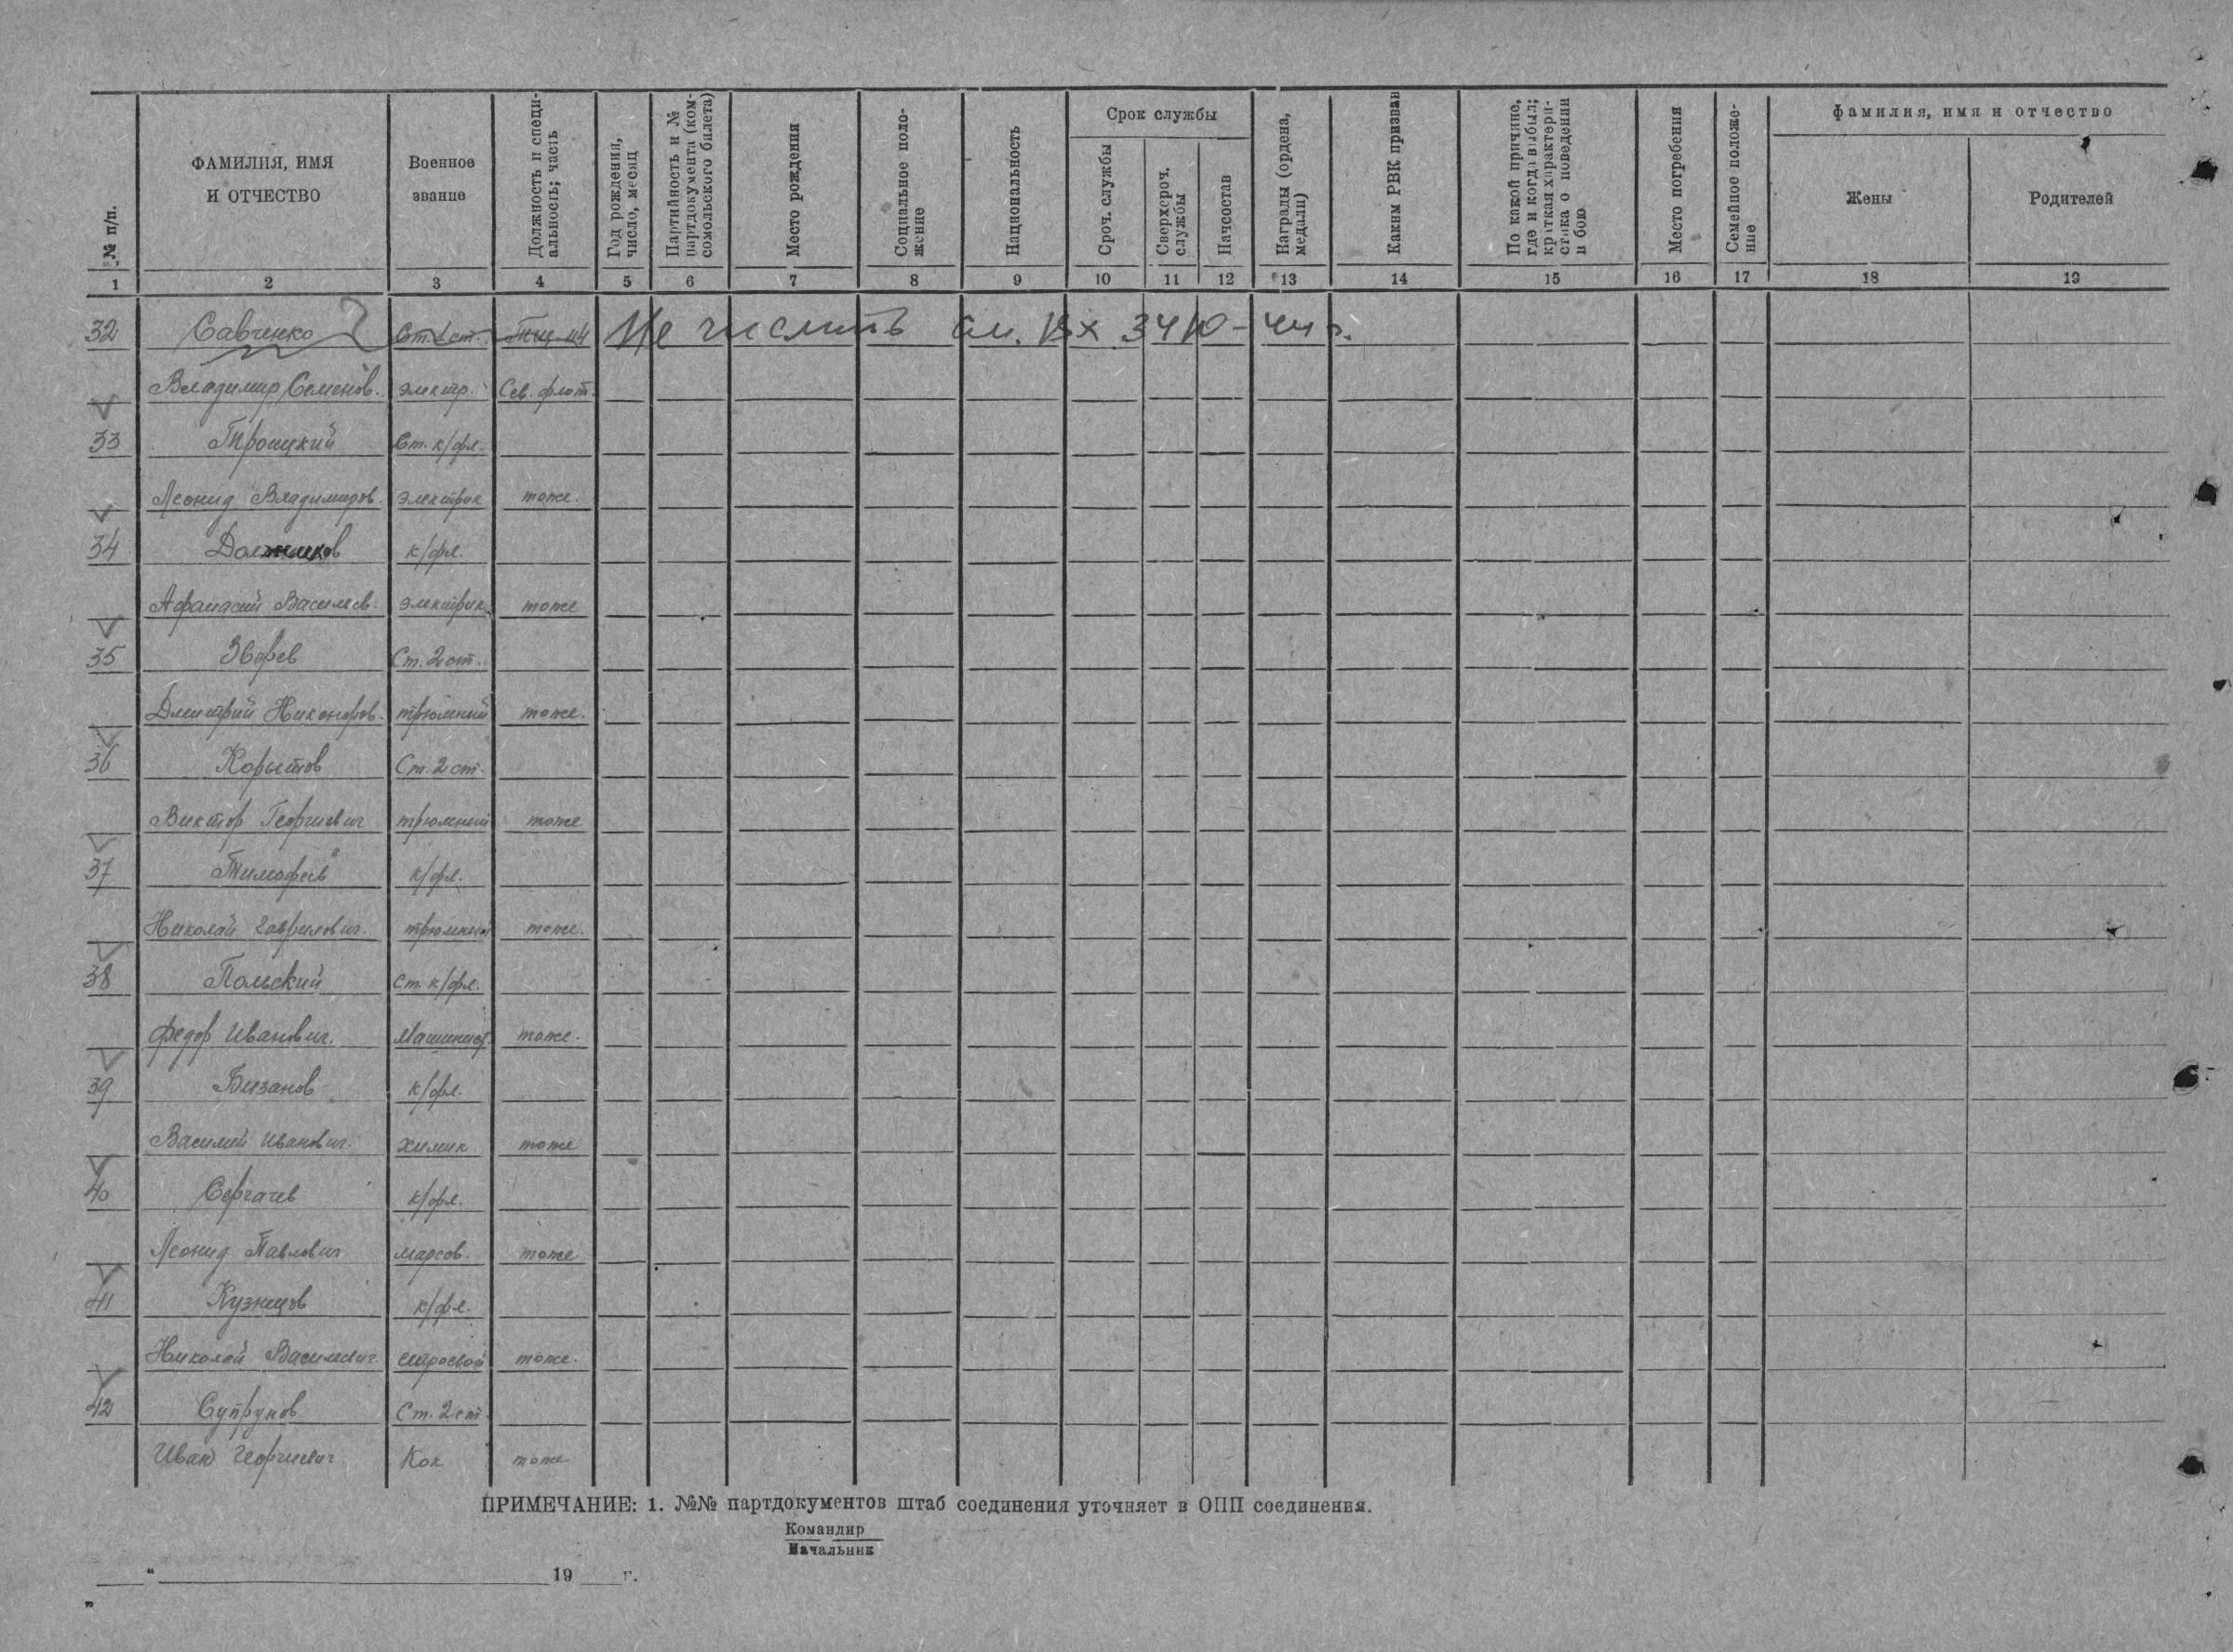 № п/п.
ФАМИЛИЯ, ИМЯ
И ОТЧЕСТВО
Военное
звание
Должность и специ-
альность; часть
Год рождения,
число, месяц
Партийность и №
партдокумента (ком-
сомольского билета)
Место рождения
Социальное поло-
жение
Национальность
Срок службы
Сроч. службы
Сверхсроч.
службы
Начсостав
Награды (ордена,
медали)
Каким РВК призван
По какой причине,
где и когда выбыл;
краткая характери-
стика о поведении
в бою
Место погребения
Семейное положе-
ние
фамилия, имя и отчество
Жены
Родителей
1 2 3 4 5 6 7 8 9 10 11 12 13 14 15 16 17 18 19
32 Савченко Ст. 1 ст. Не числить см. Вх 3410-44 г.
Владимир Семенов. электр. Сев. флот.
33 Троицкий Ст. к/фл.
Леонид Владимиров. электрик тоже.
34 Должиков к/фл.
Афанасий Васильев. электрик тоже
35 Зверев Ст. 2 ст.
Дмитрий Никоноров. трюмный тоже.
36 Корытов Ст. 2 ст.
Виктор Георгиевич трюмный тоже
37 Тимофеев к/фл.
Николай Гаврилович. трюмный тоже.
38 Польский Ст. к/фл.
Федор Иванович. Машинист. тоже.
39 Бизанов к/фл.
Василий Иванович. химик тоже
40 Сергачев к/фл.
Леонид Павлович марсов. тоже
41 Кузнецов к/фл.
Николай Васильевич. строевой тоже.
42 Супрунов Ст. 2 ст.
Иван Георгиевич Кок тоже
ПРИМЕЧАНИЕ: 1. №№ партдокументов штаб соединения уточняет в ОПП соединения.
Командир
Начальник
" 19 г.